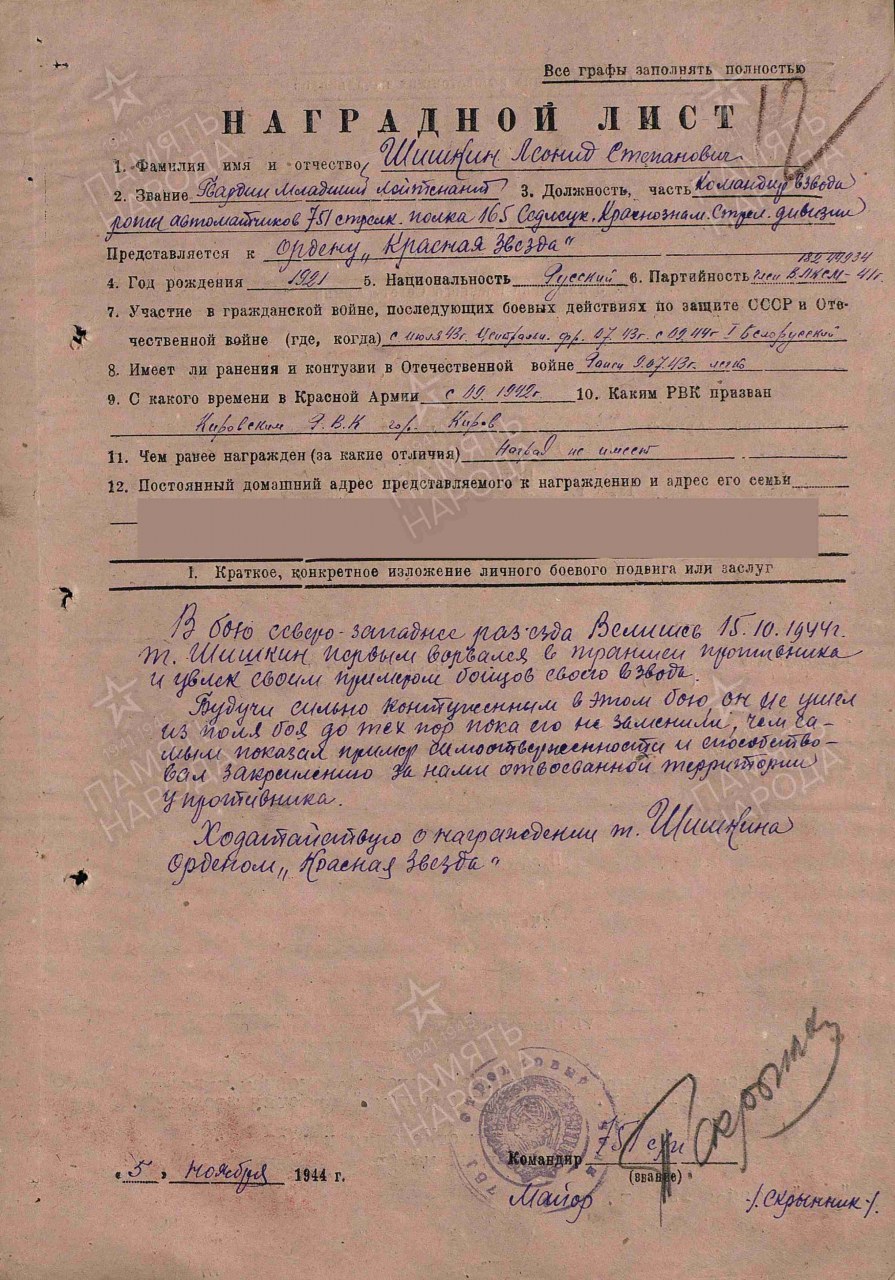 Все графы заполнять полностью
12
НАГРАДНОЙ ЛИСТ
1. Фамилия имя и отчество Шишкин Леонид Степанович
2. Звание Гвардии Младший лейтенант 3. Должность, часть Командир взвода
роты автоматчиков 751 стрелк. полка 165 Седлецк. Краснознам. Стрел. дивизии
Представляется к ордену „Красная Звезда“
4. Год рождения 1921 5. Национальность Русский 6. Партийность член ВЛКСМ- 41г.
7. Участие в гражданской войне, последующих боевых действиях по защите СССР и Оте-
чественной войне (где, когда) с июля 43г. Централн. фр. 07.43г. с 09.44г I Белорусский
8. Имеет ли ранения и контузии в Отечественной войне Ранен 9.07.43г. легко
9. С какого времени в Красной Армии с 09 1942г 10. Каким РВК призван
Кировским Р.В.К гор. Киров
11. Чем ранее награжден (за какие отличия) Наград не имеет
12. Постоянный домашний адрес представляемого к награждению и адрес его семьи
I. Краткое, конкретное изложение личного боевого подвига или заслуг
В бою северо-западнее раз'езда Велишев 15.10.1944г.
т. Шишкин первым ворвался в траншеи противника
и увлек своим примером бойцов своего взвода.
Будучи сильно контуженным в этом бою он не ушел
из поля боя до тех пор пока его не заменили, чем са-
мым показал пример самоотверженности и способство-
вал закреплению за нами отвоеванной территории
у противника.
Ходатайствую о награждении т. Шишкина
Орденом „Красная Звезда“
Командир 751 сп
(звание)
„5“ ноября 1944 г.
Майор /Скрынник/.
ПАМЯТЬ НАРОДА
1941-1945